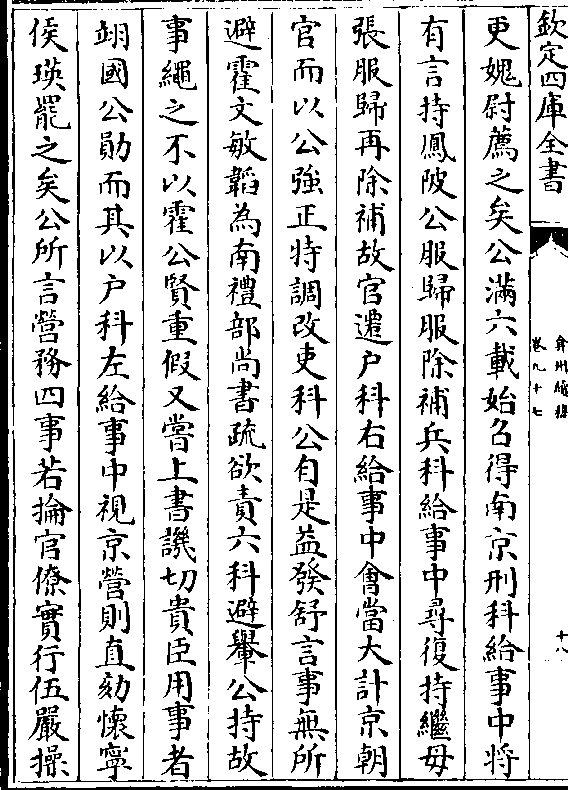 欽定四庫全書
弇州續稿
卷九十七
十八
更媿尉薦之矣公滿六載始召得南京刑科給事中将
有言持鳳陂公服歸服除補兵科給事中尋復持繼母
張服歸再除補故官遷户科右給事中會當大計京朝
官而以公強正特調改吏科公自是益發舒言事無所
避霍文敏韜為南禮部尚書疏欲責六科避轝公持故
事繩之不以霍公賢重假又嘗上書譏切貴臣用事者
翊國公勛而其以户科左給事中視京營則直劾懷寧
侯瑛罷之矣公所言營務四事若掄官僚實行伍嚴操